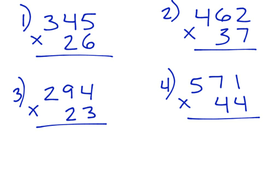 1) 345
× 26
2) 462
× 37
3) 294
× 23
4) 571
× 44